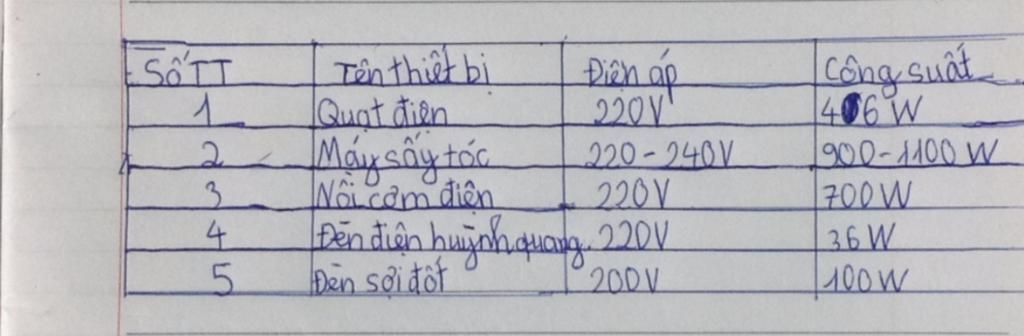 Số TT Tên thiết bị Điện áp Công suất
1 Quạt điện 220V 46 W
2 Máy sấy tóc 220-240V 900-1100 W
3 Nồi cơm điện 220V 700 W
4 Đèn điện huỳnh quang 220V 36 W
5 Đèn sợi đốt 200V 100 W